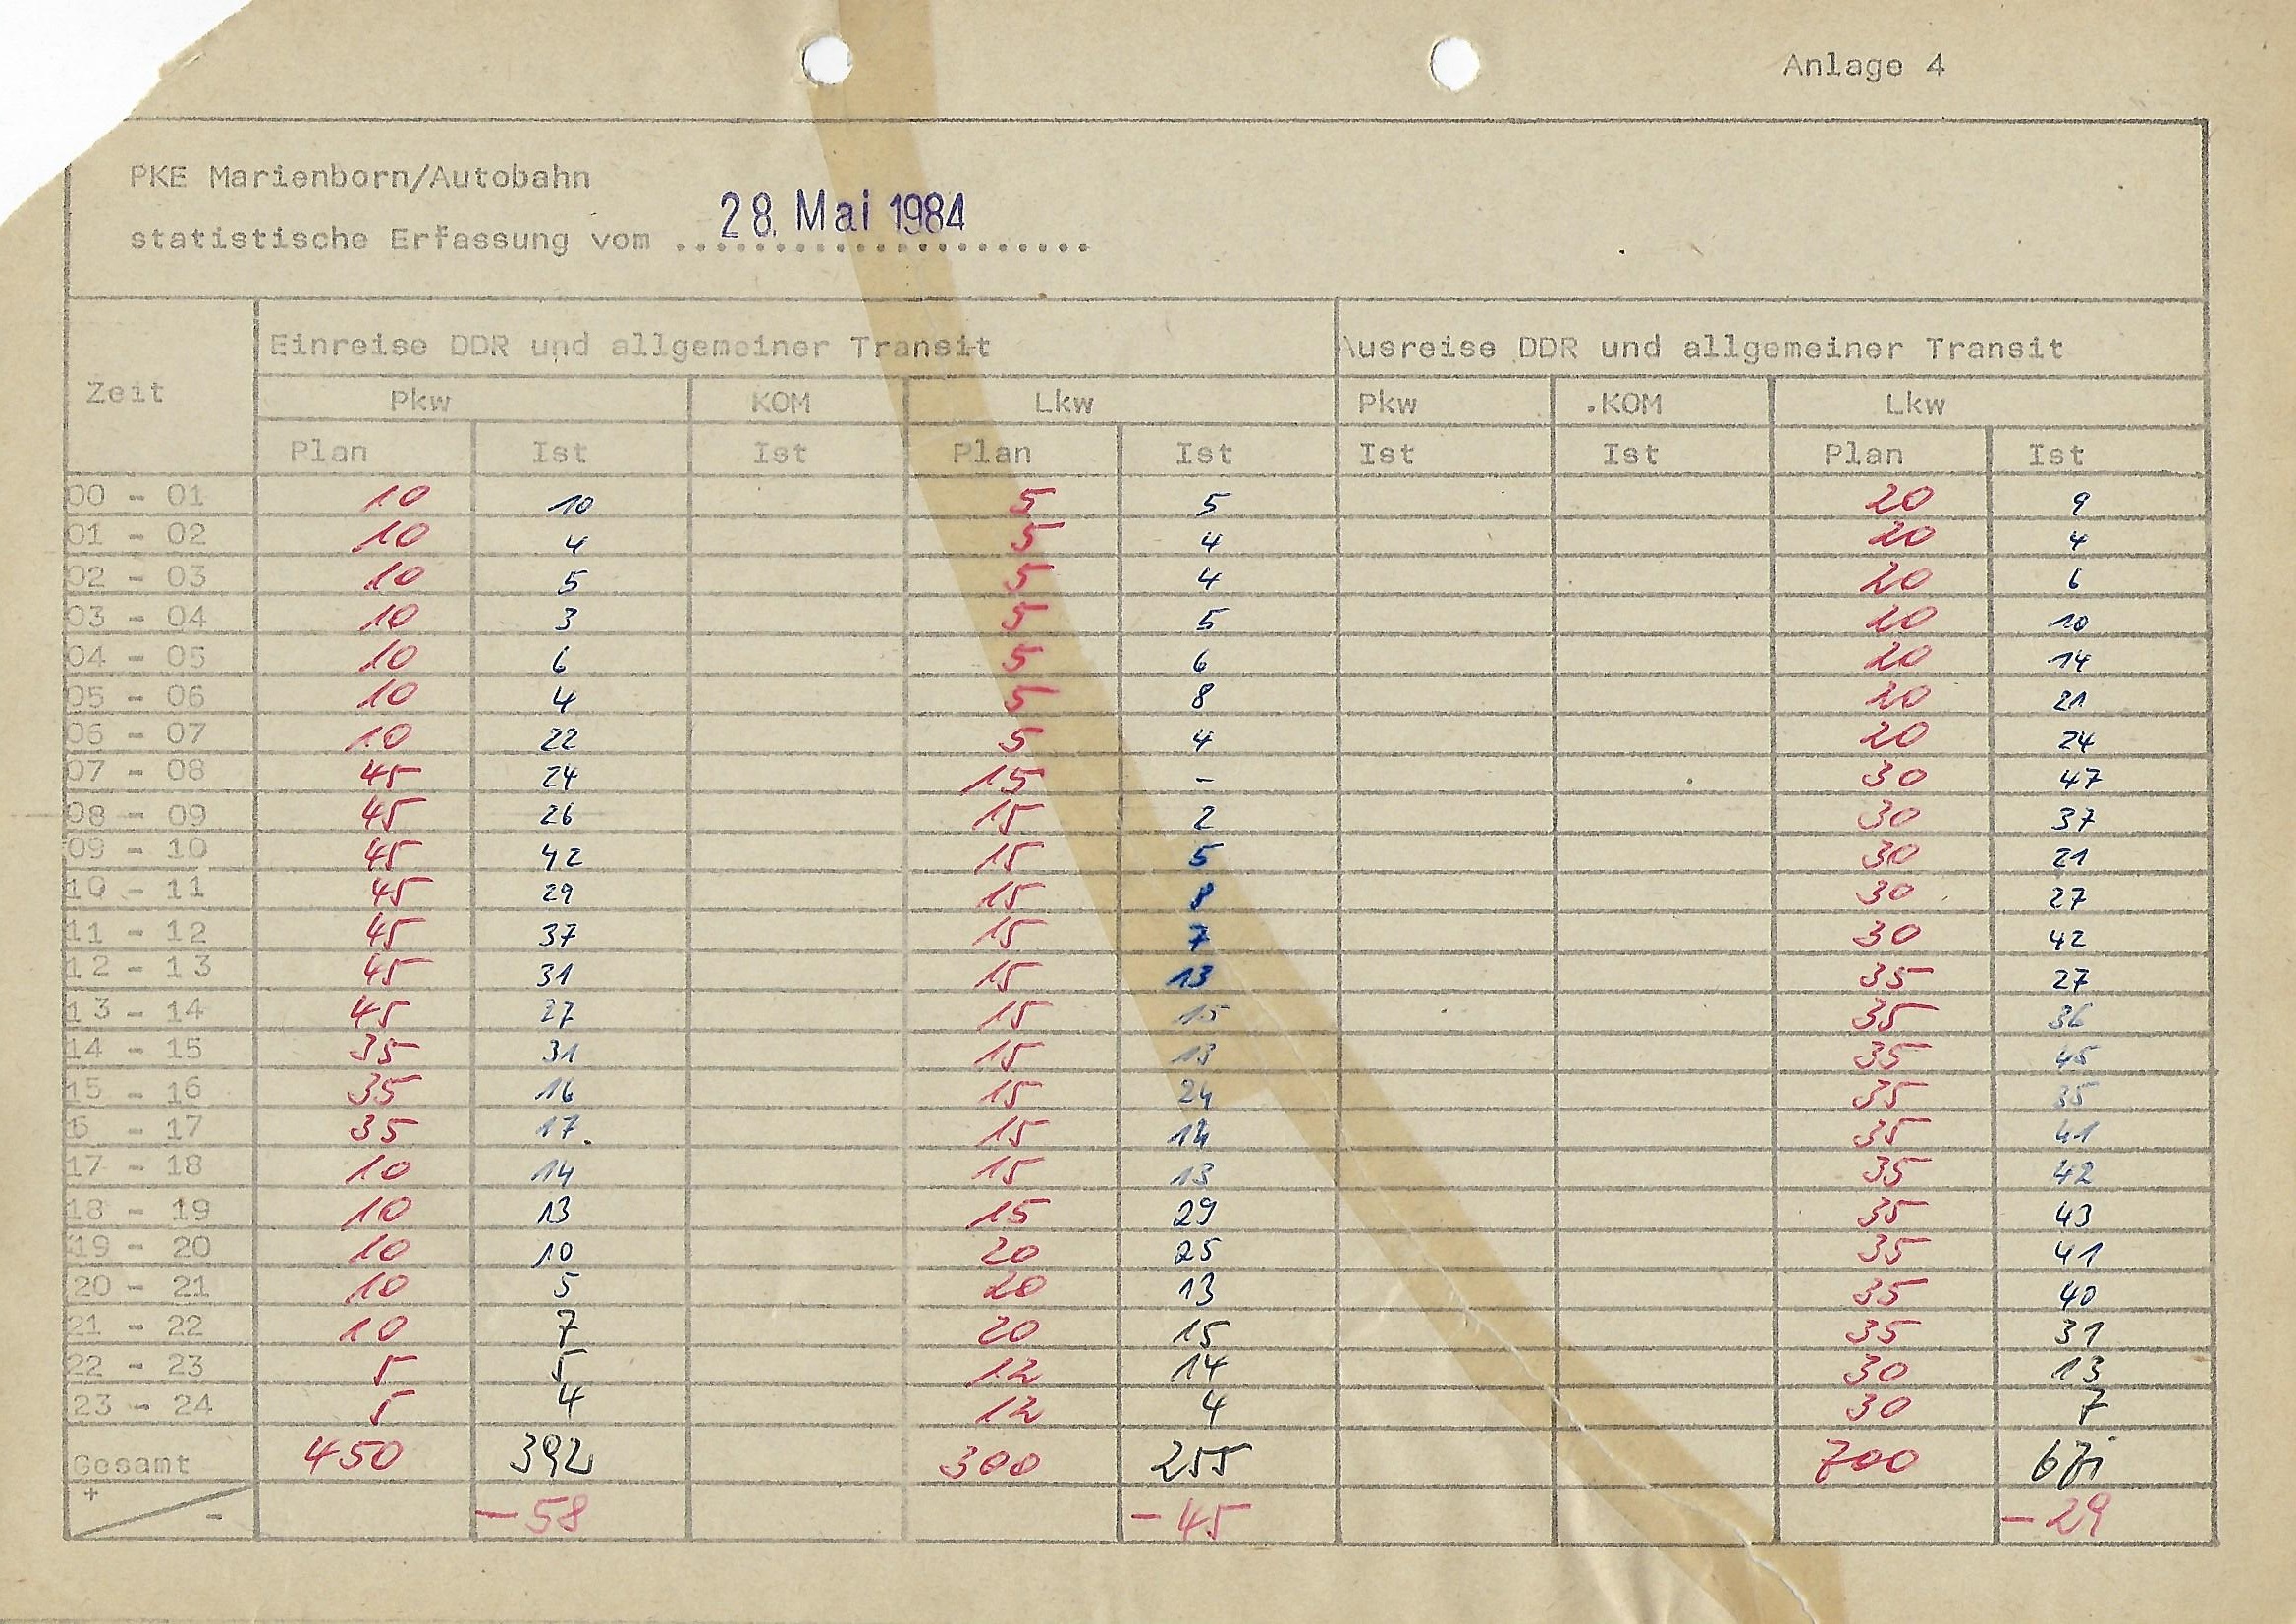 Anlage 4
PKE Marienborn/Autobahn
28. Mai 1984
statistische Erfassung vom .....................
Einreise DDR und allgemeiner Transit Ausreise DDR und allgemeiner Transit
Zeit
Pkw KOM Lkw Pkw .KOM Lkw
Plan Ist Ist Plan Ist Ist Ist Plan Ist
00 - 01 10 10 5 5 20 9
01 - 02 10 4 5 4 20 4
02 - 03 10 5 5 4 20 6
03 - 04 10 3 5 5 20 10
04 - 05 10 6 5 6 20 14
05 - 06 10 4 5 8 20 21
06 - 07 10 22 5 4 20 24
07 - 08 45 24 15 - 30 47
08 - 09 45 26 15 2 30 37
09 - 10 45 42 15 5 30 21
10 - 11 45 29 15 8 30 27
11 - 12 45 37 15 7 30 42
12 - 13 45 31 15 13 35 27
13 - 14 45 27 15 15 35 36
14 - 15 35 31 15 13 35 45
15 - 16 35 16 15 24 35 35
6 - 17 35 17. 15 35 41
17 - 18 10 14 15 13 35 42
18 - 19 10 13 15 29 35 43
19 - 20 10 10 20 25 35 41
20 - 21 10 5 20 13 35 40
21 - 22 10 7 20 15 35 31
22 - 23 5 5 12 14 30 13
23 - 24 5 4 12 4 30 7
Gesamt 450 392 300 255 700
+
- - 58 - 45 - 29